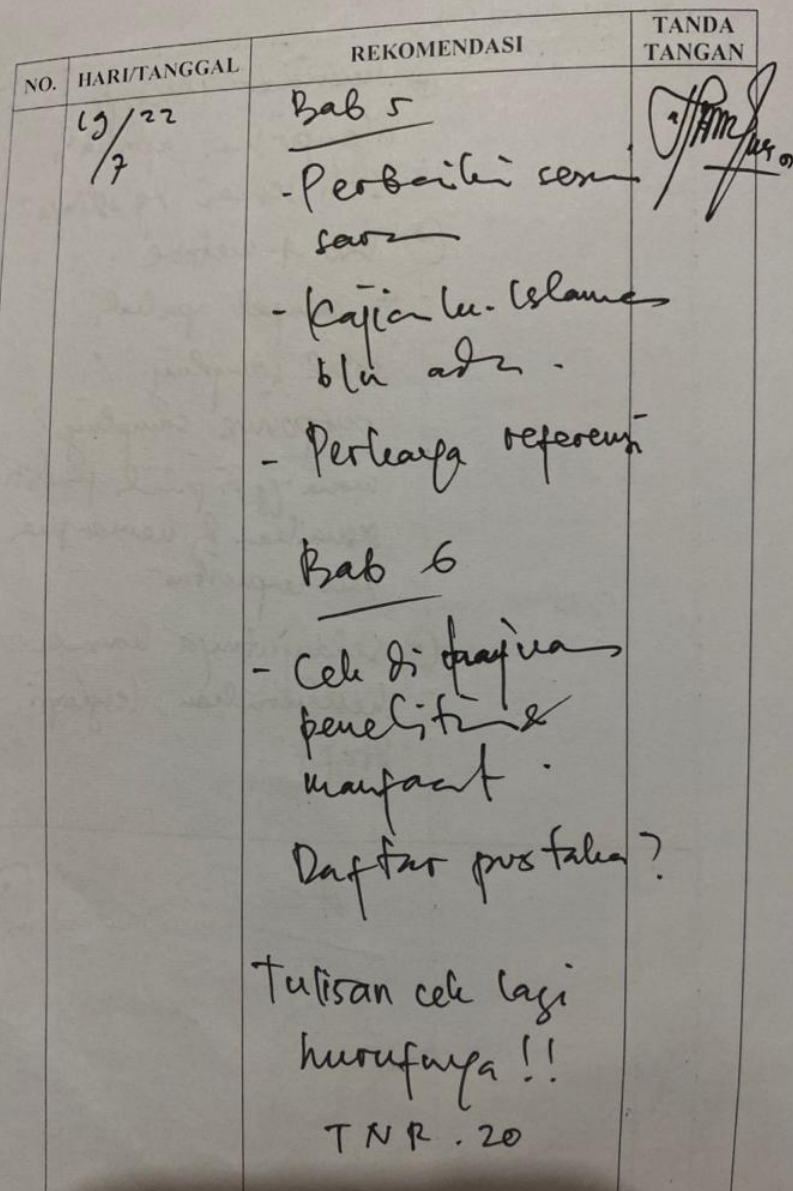 NO. HARI/TANGGAL REKOMENDASI TANDA TANGAN
19/7 22
Bab 5
- Perbaiki sesuai
saran
- Kajian ke-Islaman
blm ada.
- Perhatya referensi
Bab 6
- Cek di tujuan
penelitian &
manfaat.
Daftar pustaka?
Tulisan cek lagi
hurufnya !!
TNR . 20